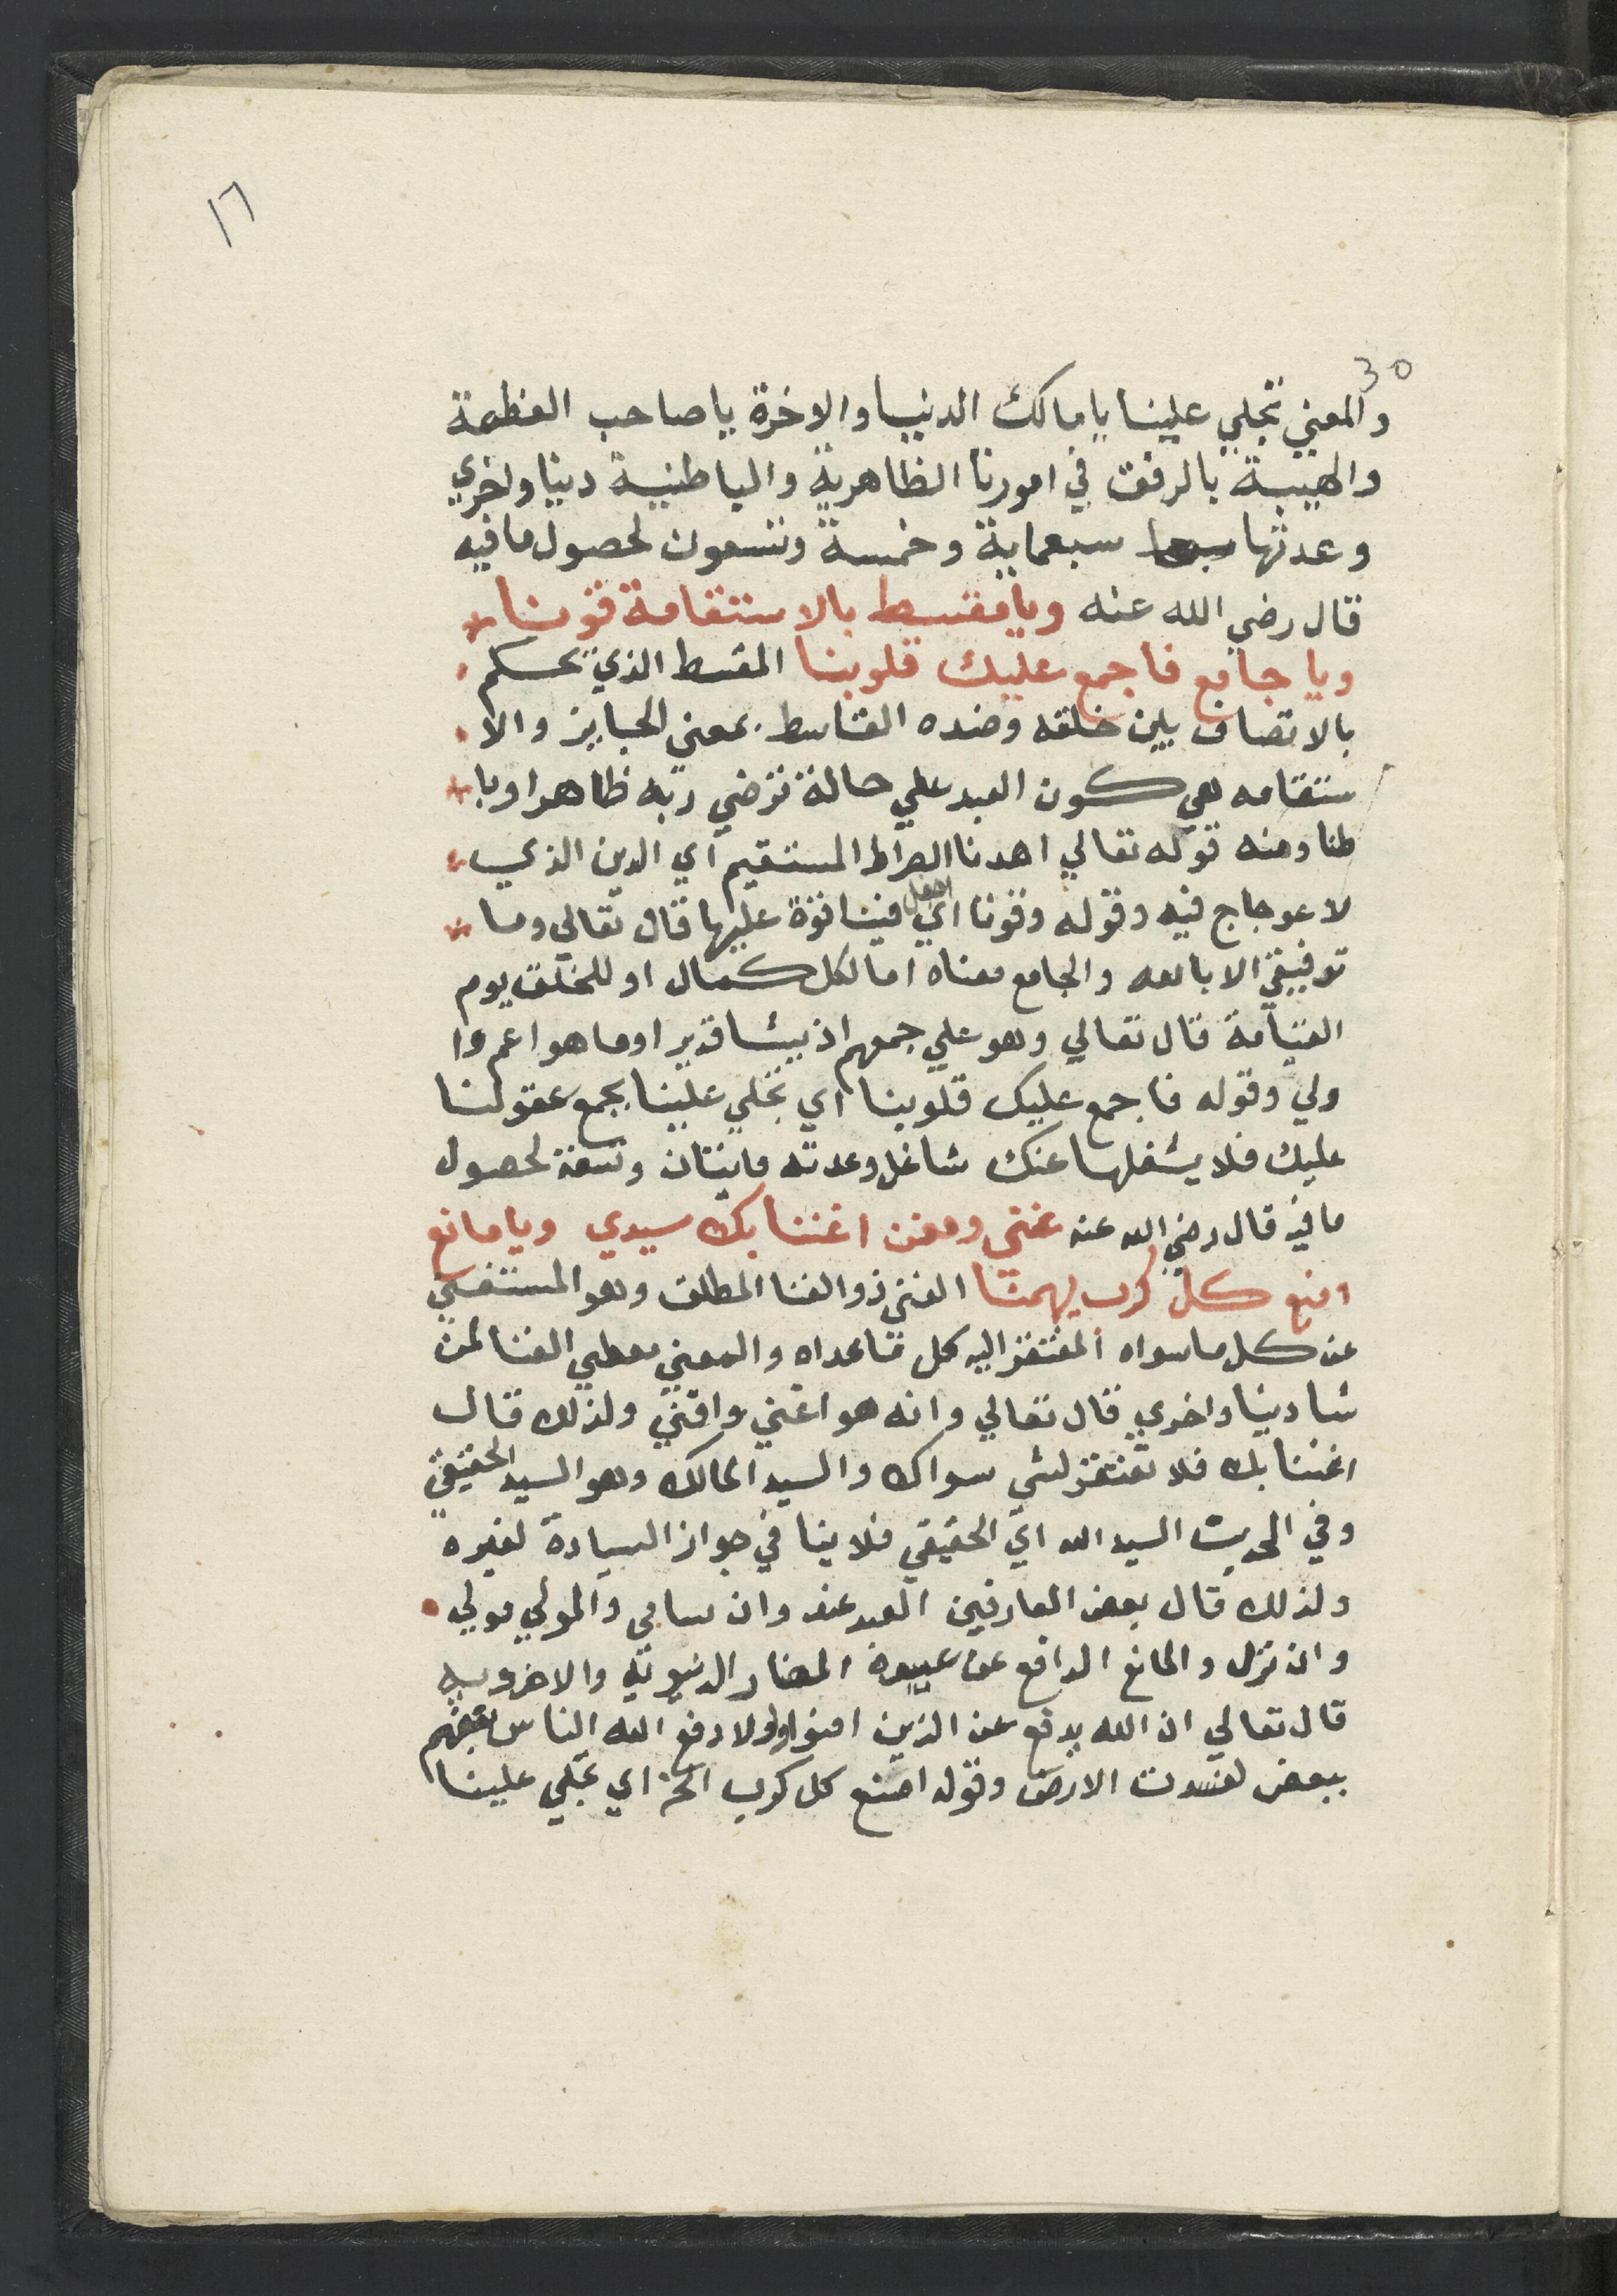 ١٦
30
والمعني تجلي علينا يا مالك الدنيا والاخرة يا صاحب العظمة
والهيبة بالرفق في امورنا الظاهرية والباطنية دنيا واخري
وعدتها سبعماية وخمسة وتسعون لحصول ما فيه
قال رضي الله عنه ويا مقسط بالاستقامة قونا
ويا جامع فاجمع عليك قلوبنا المقسط الذي يحكم
بالانصاف بين خلقه وضده القاسط بمعني الجاير والا
ستقامه هي كون العبد علي حالة ترضي ربه ظاهرا وبا
طنا ومنه قوله تعالي اهدنا الصراط المستقيم اي الدين الذي
لا عوجاج فيه وقوله وقونا اي اجعل فينا قوة عليها قال تعالي وما
توفيقي الا بالله والجامع معناه اما لكل كمال او للخلق يوم
القيامة قال تعالي وهو علي جمعهم اذ يشا قدير او ما هو اعم وا
ولي وقوله فاجمع عليك قلوبنا اي تجلي علينا بجمع عقولنا
عليك فلا يشغلها عنك شاغل وعدته مايتان وتسعة لحصول
ما فيه قال رضي الله عنه غني ومغن اغننا بك سيدي ويا مانع
امنع كل كرب يهمنا الغني ذو الغنا المطلق وهو المستغني
عن كل ما سواه المفتقر اليه كل ما عداه والمغني معطي الغنا لمن
شا دنيا واخري قال تعالي وانه هو اغني واقني ولذلك قال
اغننا بك فلا نفتقر لشي سواك والسيد المالك وهو السيد الحقيقي
وفي الحديث السيد الله اي الحقيقي فلا ينا في جواز السيادة لغيره
ولذلك قال بعض العارفين العبد عبد وان سامي والمولي مولي
وان نزل والمانع الدافع عن عبيده المضار الدنيوية والاخروية
قال تعالي ان الله يدفع عن الذين امنوا ولولا دفع الله الناس بعضهم
ببعض لفسدت الارض وقوله امنع كل كرب الخ اي تجلي علينا